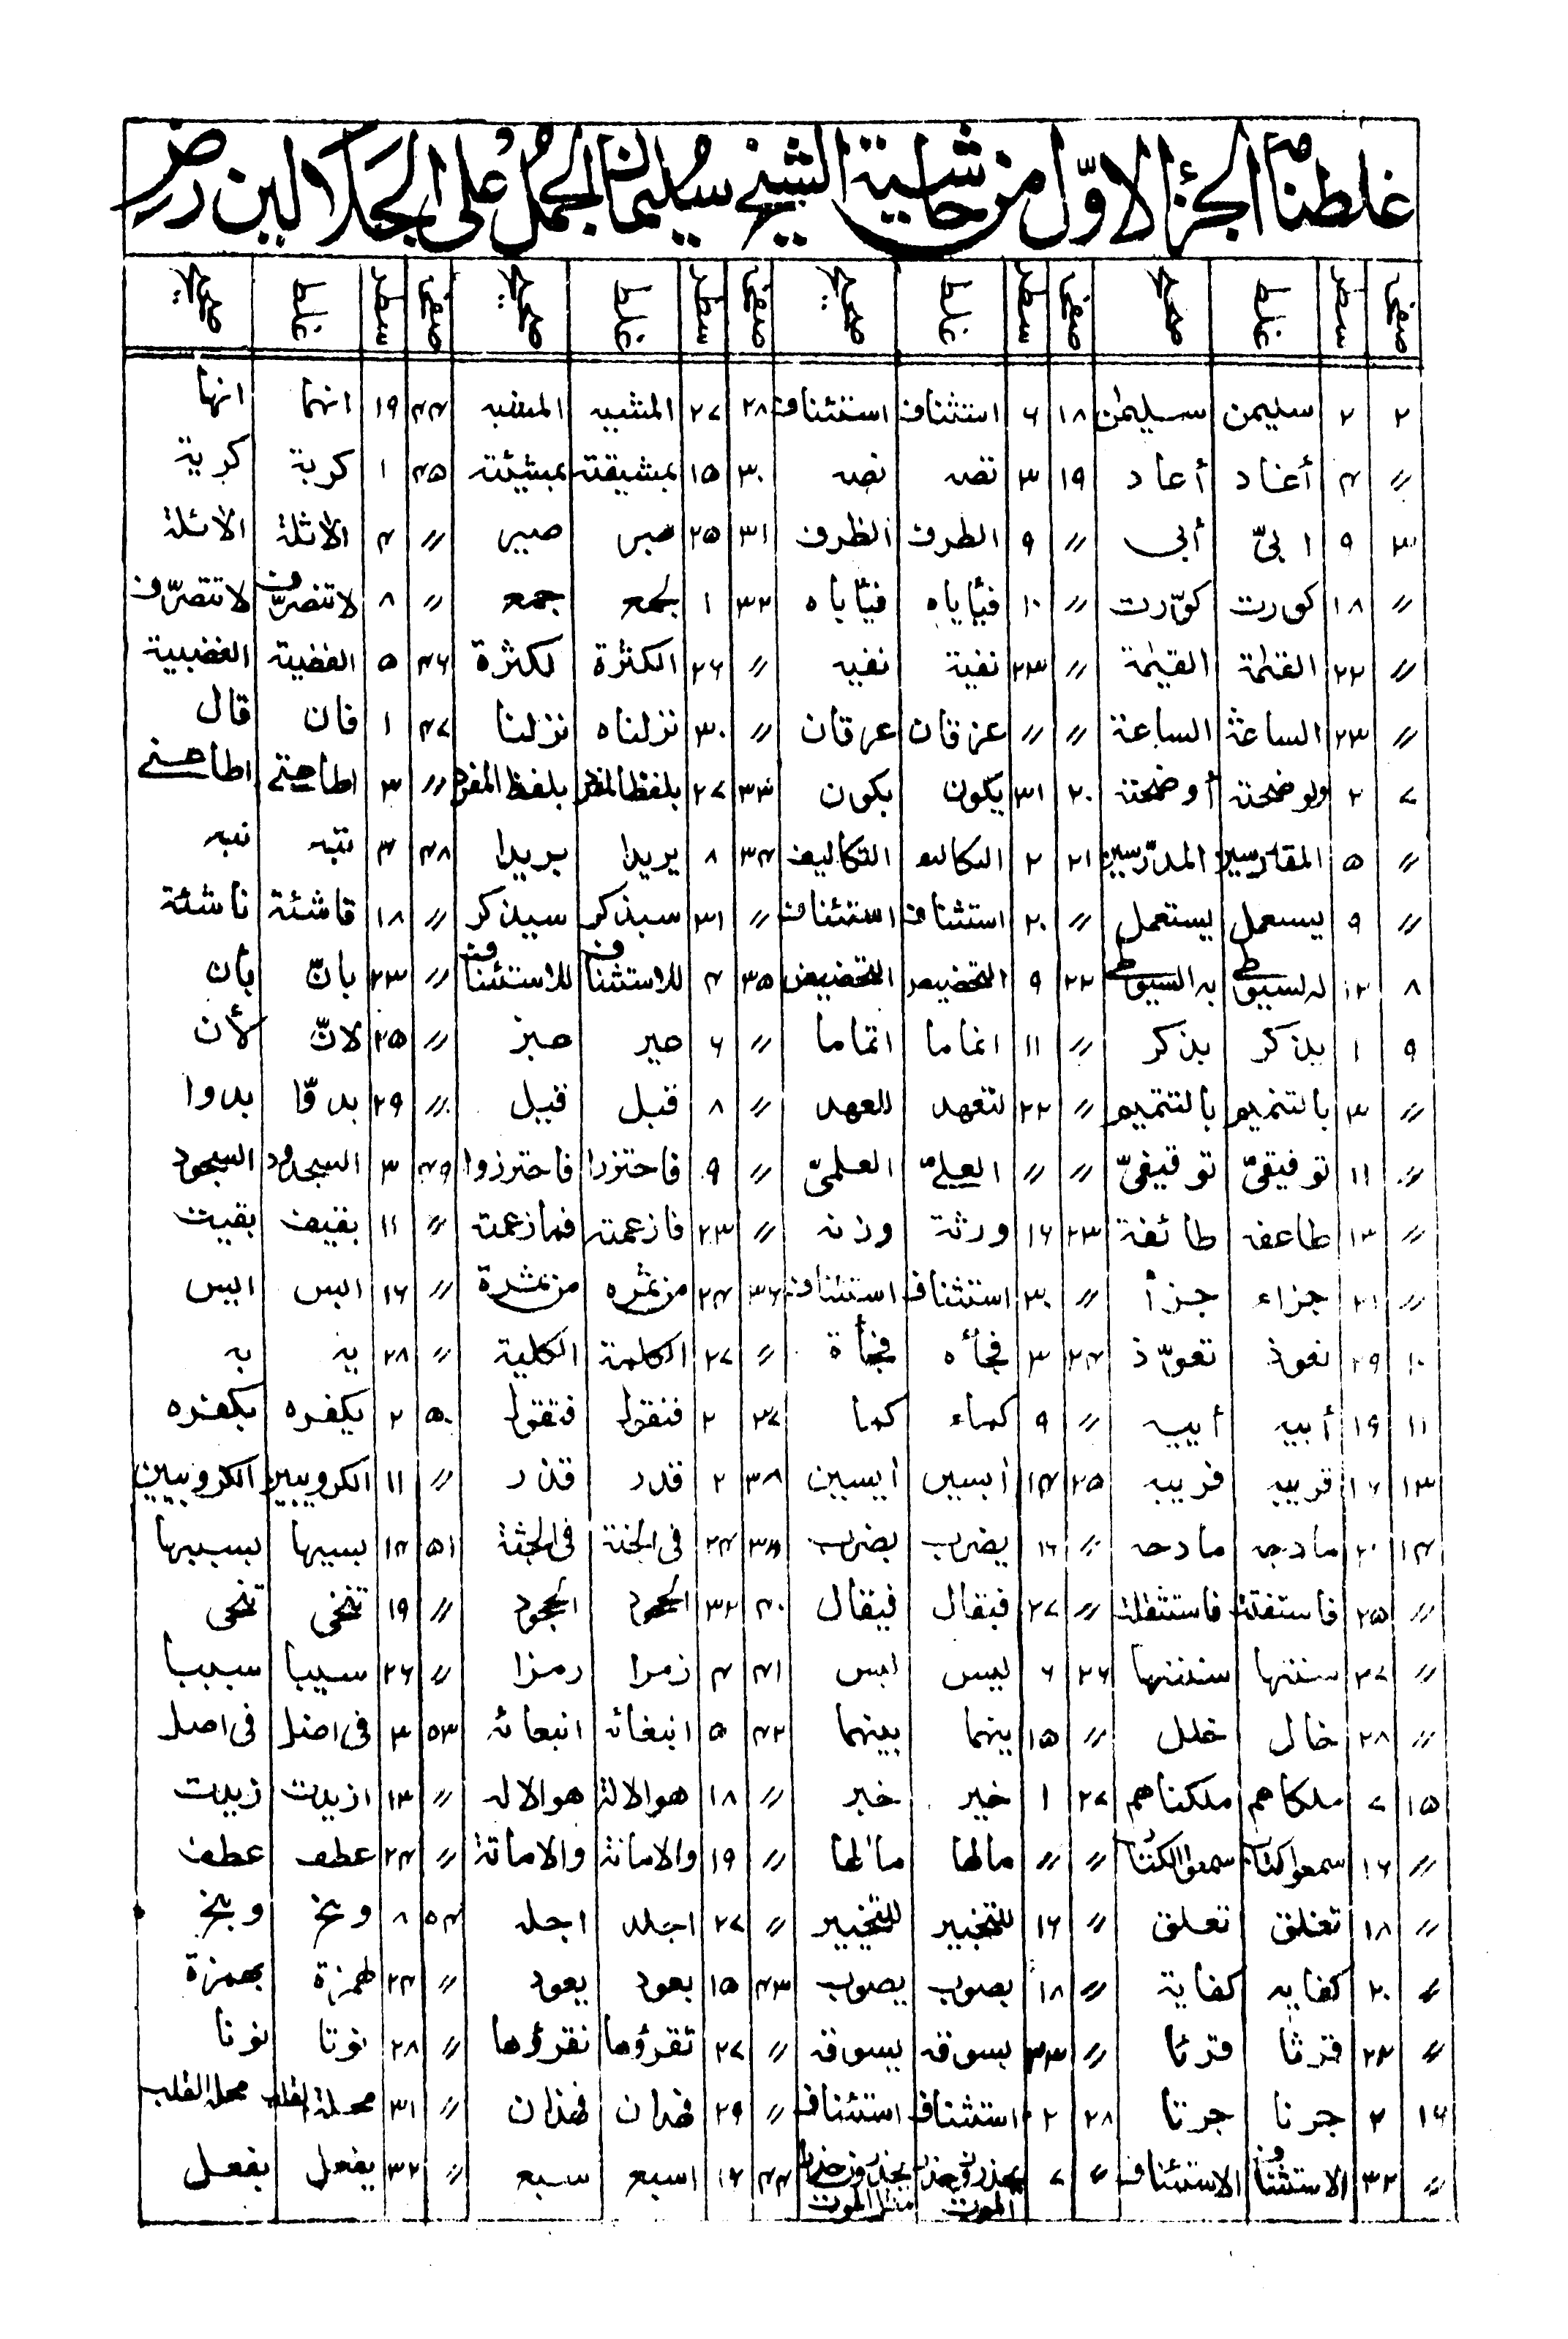 غلطنامه الجزء الاوّل من حاشية الشيخ سليمان الجمل على الجلالين رض
صفحه سطر غلط صحيح صفحه سطر غلط صحيح صفحه سطر غلط صحيح صفحه سطر غلط صحيح
٢ ٢ سليمن سليمٰن ١٨ ۶ استثناف استئناف ٢٨ ٢٧ المثبيه المشبه ۴۴ ١٩ انهما انها
〃 ۴ أغاد أعاد ١٩ ٣ تصه نصه ٣٠ ١٥ بمشيقته بمشيئته ۴۵ ١ كربة كرية
٣ ٩ ابىّ أبى 〃 ٩ الطرف الظرف ٣١ ٢۵ صبر صير 〃 ۴ الاثلة الائلة
〃 ١٨ كورت كوّرت 〃 ١٠ فيأياه فيأباه ٣٢ ١ بجمع جمع 〃 ٨ لاتنصرّف لاتتصرّف
〃 ٢٢ القتٰمة القيٰمة 〃 ٢٣ نفية نفيه 〃 ٢۶ الكثرة لكثرة ۴۶ ۵ الغضية الغضبية
〃 ٢٣ الساعثة الساعة 〃 〃 عزقان عرقان 〃 ٣٠ نزلناه نزلنا ۴٧ ١ فان قال
٧ ٢ ولوضحته أوضحته ٢٠ ٣١ يكون بكون ٣٣ ٢٧ بلفظ المفر بلفظ المفرد 〃 ٣
〃 ۵ المدرسين المدرّسين ٢١ ٢ التكاليع التكاليف ٣۴ ٨ يريدا بريدا ۴٨ ۴ نتبه نبه
〃 ٩ يسعمل يستعمل 〃 ٢٠ استثناف استئناف 〃 ٣١ سبذكر سيذكر 〃 ١٨ قاشئة ناشئة
٨ ١٢ له لسيوطى به السيوطى ٢٢ ٩ التخضيص التخصيص ٣۵ ۴ للاستثناف للاستئناف 〃 ٢٣ بانّ بأن
٩ ١ يذكر بذكر 〃 ١١ انماما اتماما 〃 ۶ صير صبر 〃 ٢۵ لانّ لأن
〃 ٣ بالتنميم بالتتميم 〃 ٢٢ لتعهد للعهد 〃 ٨ قبل قيل 〃 ٢٩ بدوّا بدوا
〃 ١١ توفيقىّ توقيفىّ 〃 〃 العلىّ العلمىّ 〃 ٩ فاحتزرا فاحترزوا ۴٩ ٣ السجدود السجود
〃 ١٣ طاعفه طائفة ٢٣ ١۶ ورثة وزنه 〃 ٢٣ فازعمته فمازعمته 〃 ١١ بقيف بقيت
〃 ٢١ جزاء جزأ 〃 ٣٠ استثناف استئناف ٣۶ ٢۴ 〃 ١۶ البس اليس
١٠ ٢٩ نعوذ تعوّذ ٢۴ ٣ فجأه فجأة 〃 ٢٧ الكلمة الكلية 〃 ٢٨ يه به
١١ ١٩ أبيه أييه 〃 ٩ كماء كما ٣٧ ٢ فنقول فتقول ۵٠ ٢ يكفره بكفره
١٣ ١۶ قريبه قريبه ٢۵ ١۴ أبسين أيسين ٣٨ ٢ قدر قذر 〃 ١١ الكرويبين الكروبيين
١۴ ٢٠ مادجه مادحه 〃 ١۶ يضرب بضرب ٣٩ ٢۴ فى الجنة فى الجثة ۵١ ١۴ بسيبها بسببها
〃 ٢۵ فاستفتلة فاستثقلت 〃 ٢٧ فبقال فيقال ۴٠ ٣٢ الجحود الججود 〃 ١٩ تنخى تنحى
〃 ٢٧ سنتها سننتها ٢۶ ۶ ليس لبس ۴١ ۴ زمرا رمزا 〃 ٢۶ سيبا سببا
〃 ٢٨ خال خلل 〃 ١۵ ينهما بينهما ۴٢ ۵ انبغاثه انبعاثه ۵٣ ٣ فى اضل فى اصل
١۵ ٧ ملكاهم ملكناهم ٢٧ ١ خير خبر 〃 ١٨ هو الالة هو الاله 〃 ١٣ ازيدت زيدت
〃 ١۶ 〃 〃 مالها مالها 〃 ١٩ والامانة والاماتة 〃 ٢۴ عطف عطف
〃 ١٨ تغلق تعلق 〃 ١۶ للتخبير للتخيير 〃 ٢٧ اجله اجله ۵۴ ٨
〃 ٢٠ كفايه كفاية 〃 ١٨ بصوب يصوب ۴٣ ١۵ بعود يعود 〃 ٢۴ لهمزة بهمزة
〃 ٢٣ قرثا قرئا 〃 ٣٣ بسوقه يسوقه 〃 ٢٧ تقرؤها نقرؤها 〃 ٢٨ نوتا نونا
١۶ ٢ جرنا جرتا ٢٨ ٢ استثناف استئناف 〃 ٢٩ فهدان فهذان 〃 ٣١ محلة القلب محل القلب
〃 ٣٢ الاستثناف الاستئناف 〃 ٧ ۴۴ ١۶ اسبع سبع 〃 ٣٢ يفعل بفعل